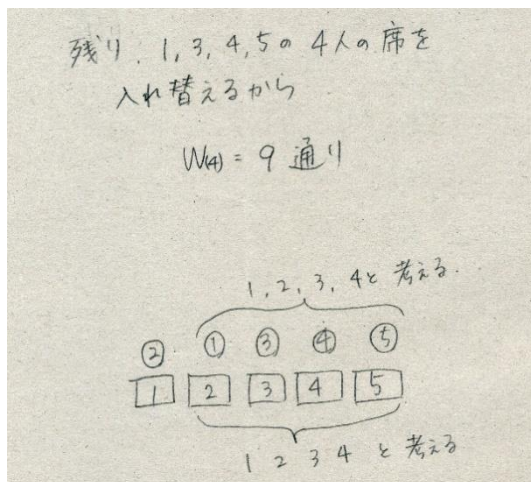 残り、1,3,4,5の4人の席を
入れ替えるから
W(4) = 9 通り
1,2,3,4と考える.
② ① ③ ④ ⑤
1 2 3 4 5
1 2 3 4 と考える